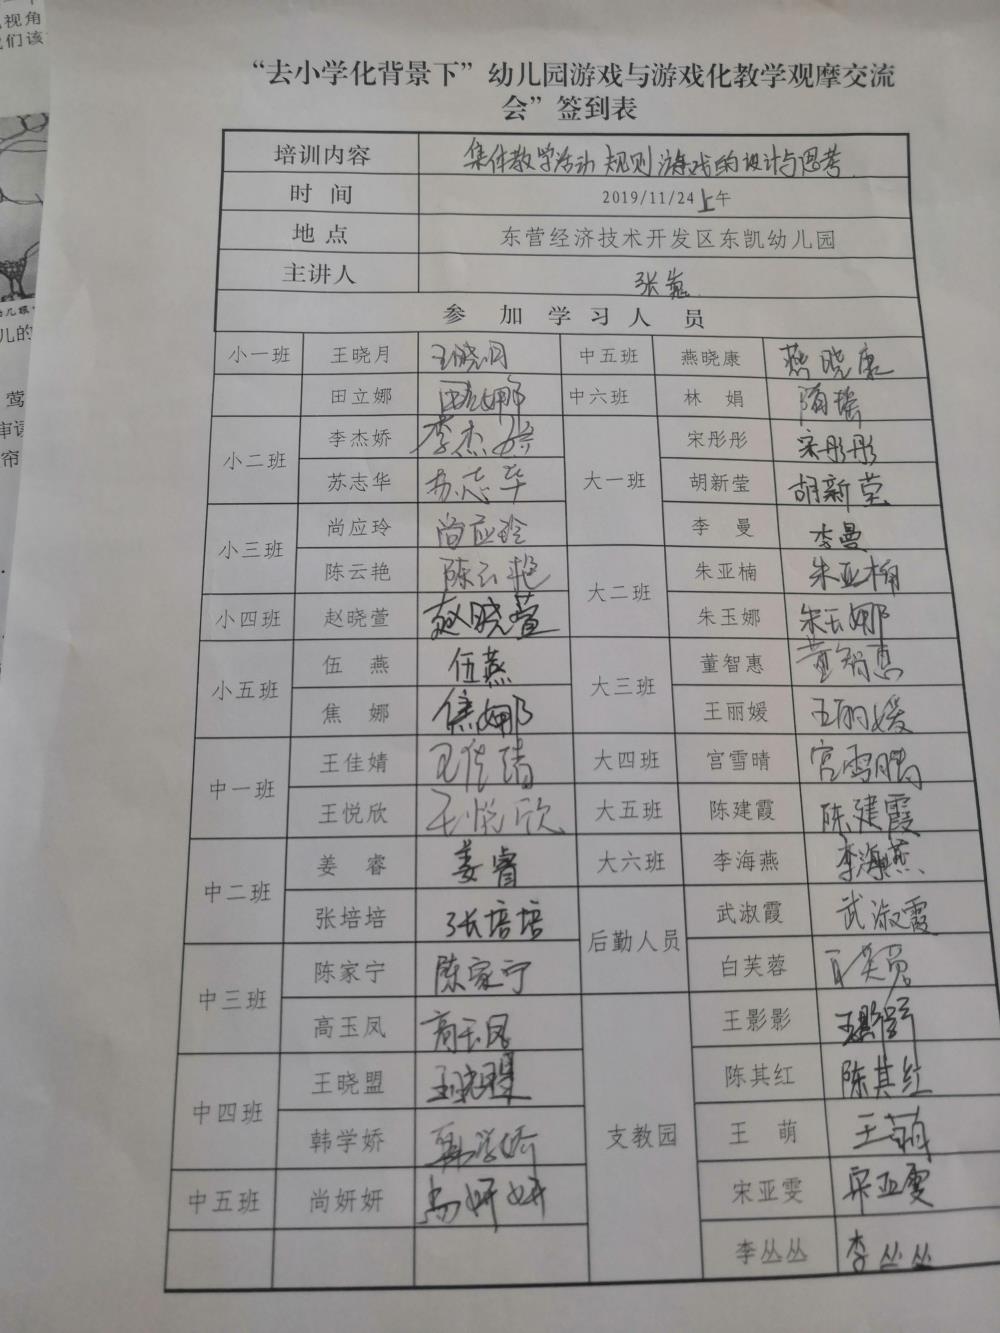 视角
们该
儿的
莺
审读
帘
“去小学化背景下”幼儿园游戏与游戏化教学观摩交流
会”签到表
培训内容 集体教学活动规则游戏的设计与思考
时 间 2019/11/24上午
地 点 东营经济技术开发区东凯幼儿园
主讲人 张
参 加 学 习 人 员
小一班 王晓月 王晓月 中五班 燕晓康 燕晓康
田立娜 田立娜 中六班 林 娟 隋瑶
小二班 李杰娇 李杰娇 大一班 宋彤彤 宋彤彤
苏志华 苏志华 胡新莹 胡新莹
小三班 尚应玲 尚应玲 李 曼 李曼
陈云艳 陈云艳 大二班 朱亚楠 朱亚楠
小四班 赵晓萱 赵晓萱 朱玉娜 朱玉娜
小五班 伍 燕 伍燕 大三班 董智惠 董智惠
焦 娜 焦娜 王丽媛 王丽媛
中一班 王佳婧 王佳婧 大四班 宫雪晴 宫雪晴
王悦欣 王悦欣 大五班 陈建霞 陈建霞
中二班 姜 睿 姜睿 大六班 李海燕 李海燕
张培培 张培培 后勤人员 武淑霞 武淑霞
中三班 陈家宁 陈家宁 白芙蓉 白芙蓉
高玉凤 高玉凤 支教园 王影影 王影影
中四班 王晓盟 王晓盟 陈其红 陈其红
韩学娇 韩学娇 王 萌 王萌
中五班 尚妍妍 尚妍妍 宋亚雯 宋亚雯
李丛丛 李丛丛